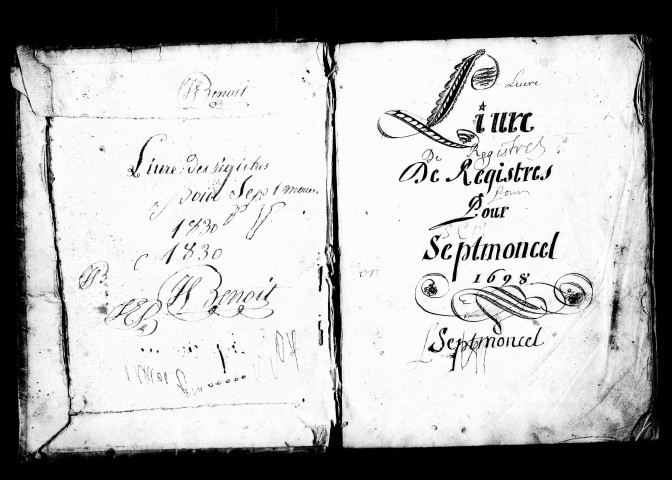 Benoit
Livre des registres
pour Septmoncel
1830
1830
Benoit
Livre
Liure
De Registres
De Registres
Pour
Pour
Septmoncel
1698
Septmoncel